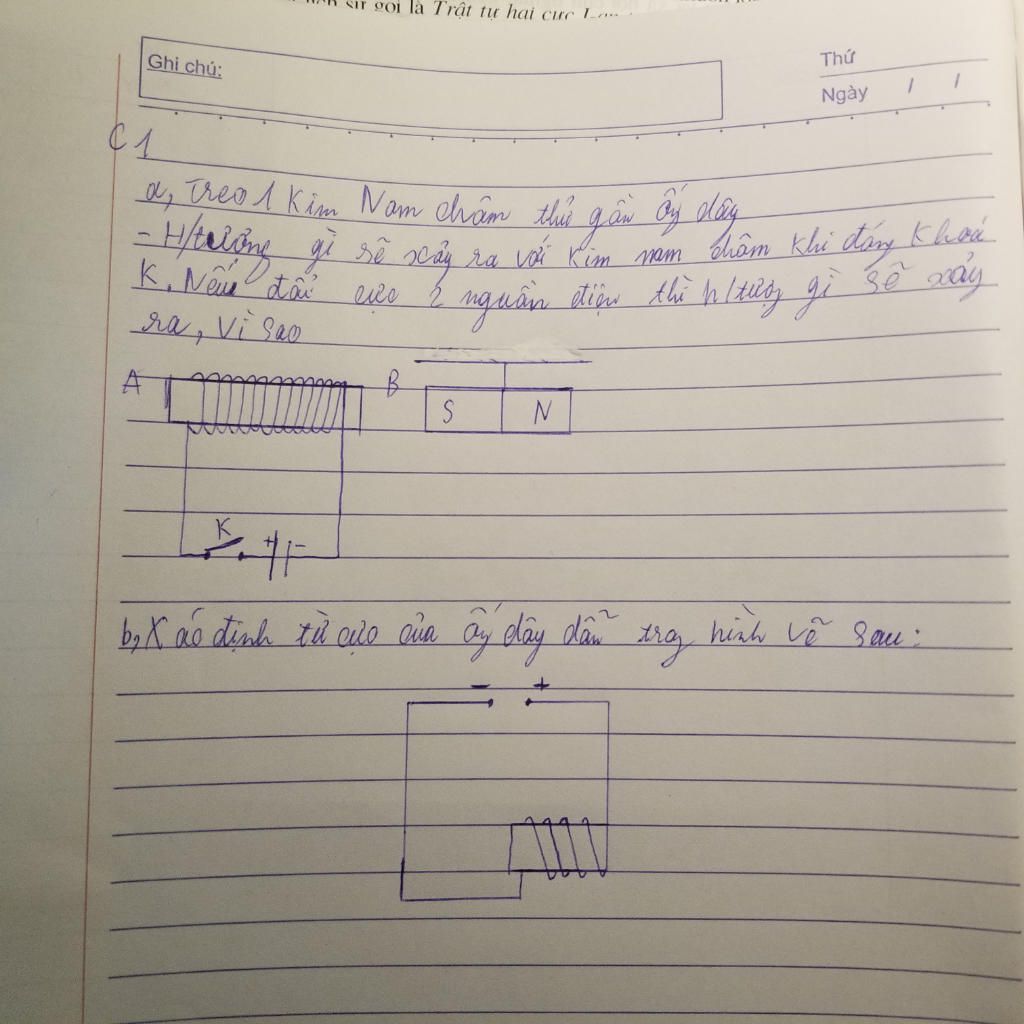 sử gọi là Trật tự hai cực
Ghi chú:
Thứ
Ngày / /
C1
a, Treo 1 Kim Nam châm thử gần ố́ng dây
- H/tượng gì sẽ xảy ra với kim nam châm khi đóng khoá
K. Nếu đổi cực 2 nguồn điện thì h/tượg gì sẽ xảy
ra, vì sao
A B
S N
K
+ -
b, Xác định từ cực của ống dây dẫn trog hình vẽ sau:
- +